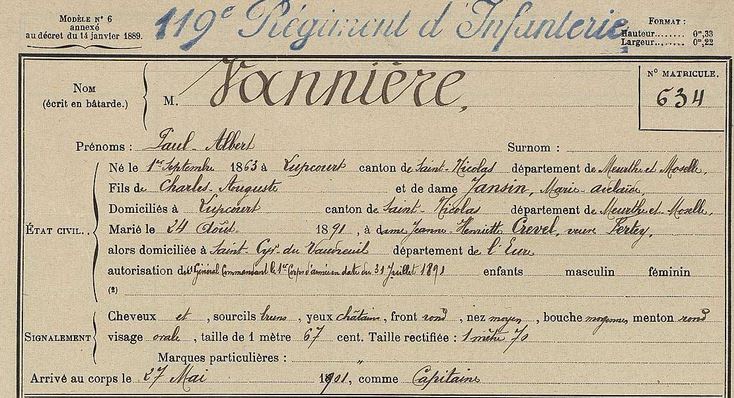 MODÈLE N° 6
annexé
au décret du 14 janvier 1889.
119e Régiment d'Infanterie
FORMAT :
Hauteur....... 0m,33
Largeur....... 0m,22
NOM
(écrit en bâtarde.)
M. Vannière,
N° MATRICULE.
634
Prénoms : Paul-Albert Surnom :
ÉTAT CIVIL.
Né le 1er Septembre 1863 à Lupcourt canton de Saint-Nicolas département de Meurthe et Moselle,
Fils de Charles-Auguste et de dame Jansin, Marie-
Domiciliés à Lupcourt canton de Saint-Nicolas département de Meurthe et Moselle,
Marié le 24 Août 1891, à dame Jeanne Henriette Crevel, veuve Fertey,
alors domiciliée à Saint-Cyr du Vaudreuil département de l'Eure
autorisation du Général Commandant le 1er Corps d'armée en date du 31 Juillet 1891 enfants masculin féminin
(2)
SIGNALEMENT
Cheveux et , sourcils bruns , yeux châtains , front rond , nez moyen , bouche moyenne, menton rond
visage ovale , taille de 1 mètre 67 cent. Taille rectifiée : 1 mètre 70
Marques particulières : "
Arrivé au corps le 27 Mai 1901, comme Capitaine